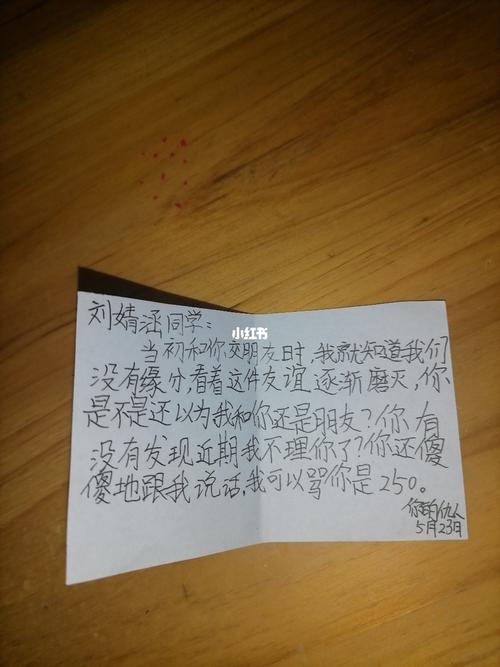 刘婧涵同学：
当初和你交朋友时，我就知道我们
没有缘分，看着这件友谊逐渐磨灭，你
是不是还以为我和你还是朋友？你有
没有发现近期我不理你了？你还傻
傻地跟我说话，我可以骂你是250。
你的仇人
5月23日
小红书